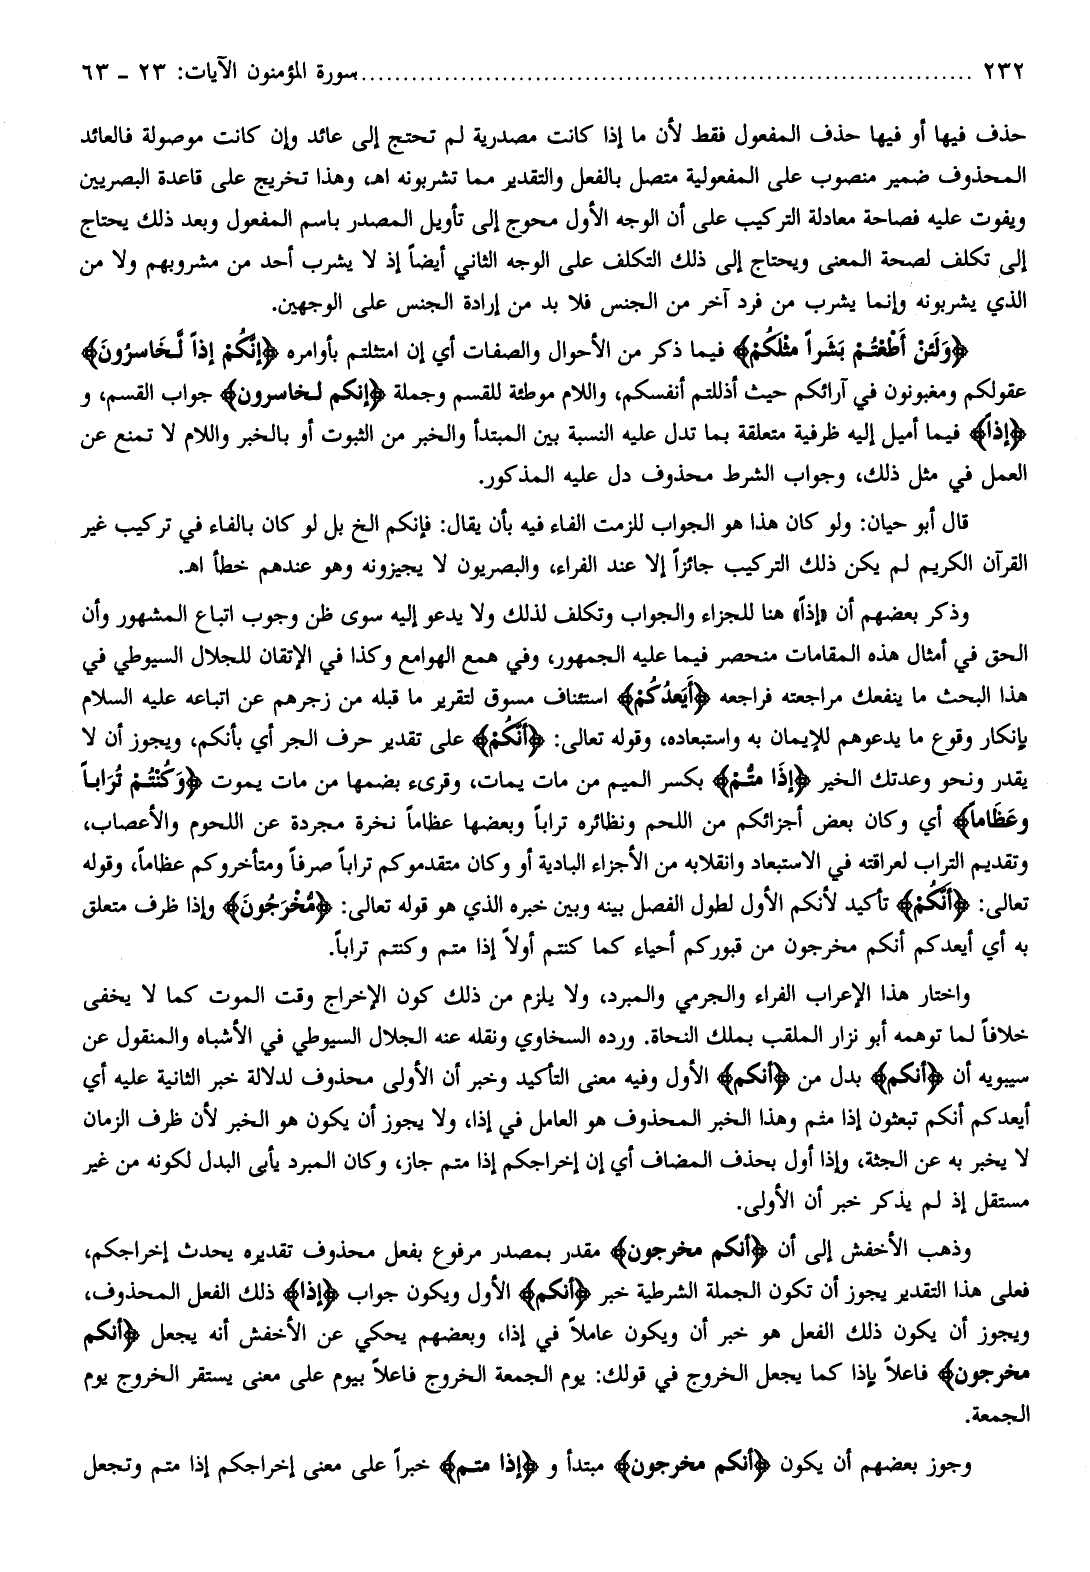 ٢٣٢ ........................................................................ سورة المؤمنون الآيات: ٢٣ ـ ٦٣
حذف فيها أو فيها حذف المفعول فقط لأن ما إذا كانت مصدرية لم تحتج إلى عائد وإن كانت موصولة فالعائد
المحذوف ضمير منصوب على المفعولية متصل بالفعل والتقدير مما تشربونه اهـ، وهذا تخريج على قاعدة البصريين
ويفوت عليه فصاحة معادلة التركيب على أن الوجه الأول محوج إلى تأويل المصدر باسم المفعول وبعد ذلك يحتاج
إلى تكلف لصحة المعنى ويحتاج إلى ذلك التكلف على الوجه الثاني أيضاً إذ لا يشرب أحد من مشروبهم ولا من
الذي يشربونه وإنما يشرب من فرد آخر من الجنس فلا بد من إرادة الجنس على الوجهين.
﴿وَلَئنْ أَطَعْتُمْ بَشَراً مثْلَكُمْ﴾ فيما ذكر من الأحوال والصفات أي إن امتثلتم بأوامره ﴿إنَّكُمْ إذاً لَّخَاسرُونَ﴾
عقولكم ومغبونون في آرائكم حيث أذللتم أنفسكم، واللام موطئة للقسم وجملة ﴿إنكم لخاسرون﴾ جواب القسم، و
﴿إذاً﴾ فيما أميل إليه ظرفية متعلقة بما تدل عليه النسبة بين المبتدأ والخبر من الثبوت أو بالخبر واللام لا تمنع عن
العمل في مثل ذلك، وجواب الشرط محذوف دل عليه المذكور.
قال أبو حيان: ولو كان هذا هو الجواب للزمت الفاء فيه بأن يقال: فإنكم الخ بل لو كان بالفاء في تركيب غير
القرآن الكريم لم يكن ذلك التركيب جائزاً إلا عند الفراء، والبصريون لا يجيزونه وهو عندهم خطأ اهـ.
وذكر بعضهم أن «إذاً» هنا للجزاء والجواب وتكلف لذلك ولا يدعو إليه سوى ظن وجوب اتباع المشهور وأن
الحق في أمثال هذه المقامات منحصر فيما عليه الجمهور، وفي همع الهوامع وكذا في الإتقان للجلال السيوطي في
هذا البحث ما ينفعك مراجعته فراجعه ﴿أَيَعدُكُمْ﴾ استئناف مسوق لتقرير ما قبله من زجرهم عن اتباعه عليه السلام
بإنكار وقوع ما يدعوهم للإيمان به واستبعاده، وقوله تعالى: ﴿أَنَّكُمْ﴾ على تقدير حرف الجر أي بأنكم، ويجوز أن لا
يقدر ونحو وعدتك الخير ﴿إذَا متُّمْ﴾ بكسر الميم من مات يمات، وقرىء بضمها من مات يموت ﴿وَكُنْتُمْ تُرَاباً
وعَظَاماً﴾ أي وكان بعض أجزائكم من اللحم ونظائره تراباً وبعضها عظاماً نخرة مجردة عن اللحوم والأعصاب،
وتقديم التراب لعراقته في الاستبعاد وانقلابه من الأجزاء البادية أو وكان متقدموكم تراباً صرفاً ومتأخروكم عظاماً، وقوله
تعالى: ﴿أَنَّكُمْ﴾ تأكيد لأنكم الأول لطول الفصل بينه وبين خبره الذي هو قوله تعالى: ﴿مُخْرَجُونَ﴾ وإذا ظرف متعلق
به أي أيعدكم أنكم مخرجون من قبوركم أحياء كما كنتم أولاً إذا متم وكنتم تراباً.
واختار هذا الإعراب الفراء والجرمي والمبرد، ولا يلزم من ذلك كون الإخراج وقت الموت كما لا يخفى
خلافاً لما توهمه أبو نزار الملقب بملك النحاة. ورده السخاوي ونقله عنه الجلال السيوطي في الأشباه والمنقول عن
سيبويه أن ﴿أنكم﴾ بدل من ﴿أنكم﴾ الأول وفيه معنى التأكيد وخبر أن الأولى محذوف لدلالة خبر الثانية عليه أي
أيعدكم أنكم تبعثون إذا متم وهذا الخبر المحذوف هو العامل في إذا، ولا يجوز أن يكون هو الخبر لأن ظرف الزمان
لا يخبر به عن الجثة، وإذا أول بحذف المضاف أي إن إخراجكم إذا متم جاز، وكان المبرد يأبى البدل لكونه من غير
مستقل إذ لم يذكر خبر أن الأولى.
وذهب الأخفش إلى أن ﴿أنكم مخرجون﴾ مقدر بمصدر مرفوع بفعل محذوف تقديره يحدث إخراجكم،
فعلى هذا التقدير يجوز أن تكون الجملة الشرطية خبر ﴿أنكم﴾ الأول ويكون جواب ﴿إذا﴾ ذلك الفعل المحذوف،
ويجوز أن يكون ذلك الفعل هو خبر أن ويكون عاملاً في إذا، وبعضهم يحكي عن الأخفش أنه يجعل ﴿أنكم
مخرجون﴾ فاعلاً بإذا كما يجعل الخروج في قولك: يوم الجمعة الخروج فاعلاً بيوم على معنى يستقر الخروج يوم
الجمعة.
وجوز بعضهم أن يكون ﴿أنكم مخرجون﴾ مبتدأ و ﴿إذا متم﴾ خبراً على معنى إخراجكم إذا متم وتجعل